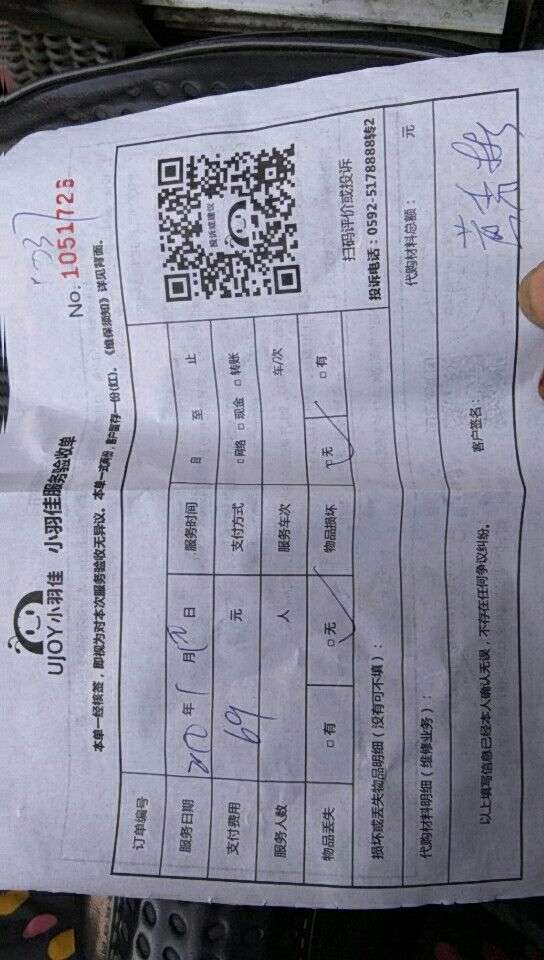 UJOY小羽佳 小羽佳服务验收单
No. 1051728
本单一经核签，即视为对本次服务验收无异议。本单一式两份，客户留存一份(红)。《维保须知》详见背面。
订单编号
服务日期 年 月 日 服务时间 自 至 止
支付费用 69 元 支付方式 □网络 □现金 □转账
服务人数 人 服务车次 车/次
物品丢失 □有 □无 物品损坏 □无 □有
投诉或建议
扫码评价或投诉
投诉电话：0592-5178888转2
损坏或丢失物品明细（没有可不填）：
代购材料明细（维修业务）： 代购材料总额： 元
以上填写信息已经本人确认无误，不存在任何争议纠纷。 客户签名：